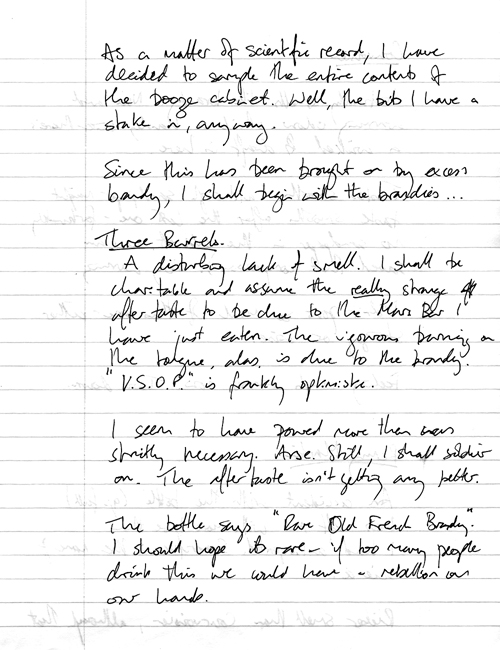 As a matter of scientific record, I have
decided to sample the entire contents of
the booze cabinet. Well, the bits I have a
stake in, anyway.
Since this has been brought on by excess
brandy, I shall begin with the brandies...
Three Barrels.
A disturbing lack of smell. I shall be
charitable and assume the really strange
aftertaste to be due to the Mars Bar I
have just eaten. The vigorous burning on
the tongue, alas, is due to the brandy.
"V.S.O.P." is frankly optimistic.
I seem to have poured more than was
strictly necessary. Arse. Still, I shall soldier
on. The aftertaste isn't getting any better.
The bottle says "Rare Old French Brandy".
I should hope its rare - if too many people
drink this we would have a rebellion on
our hands.